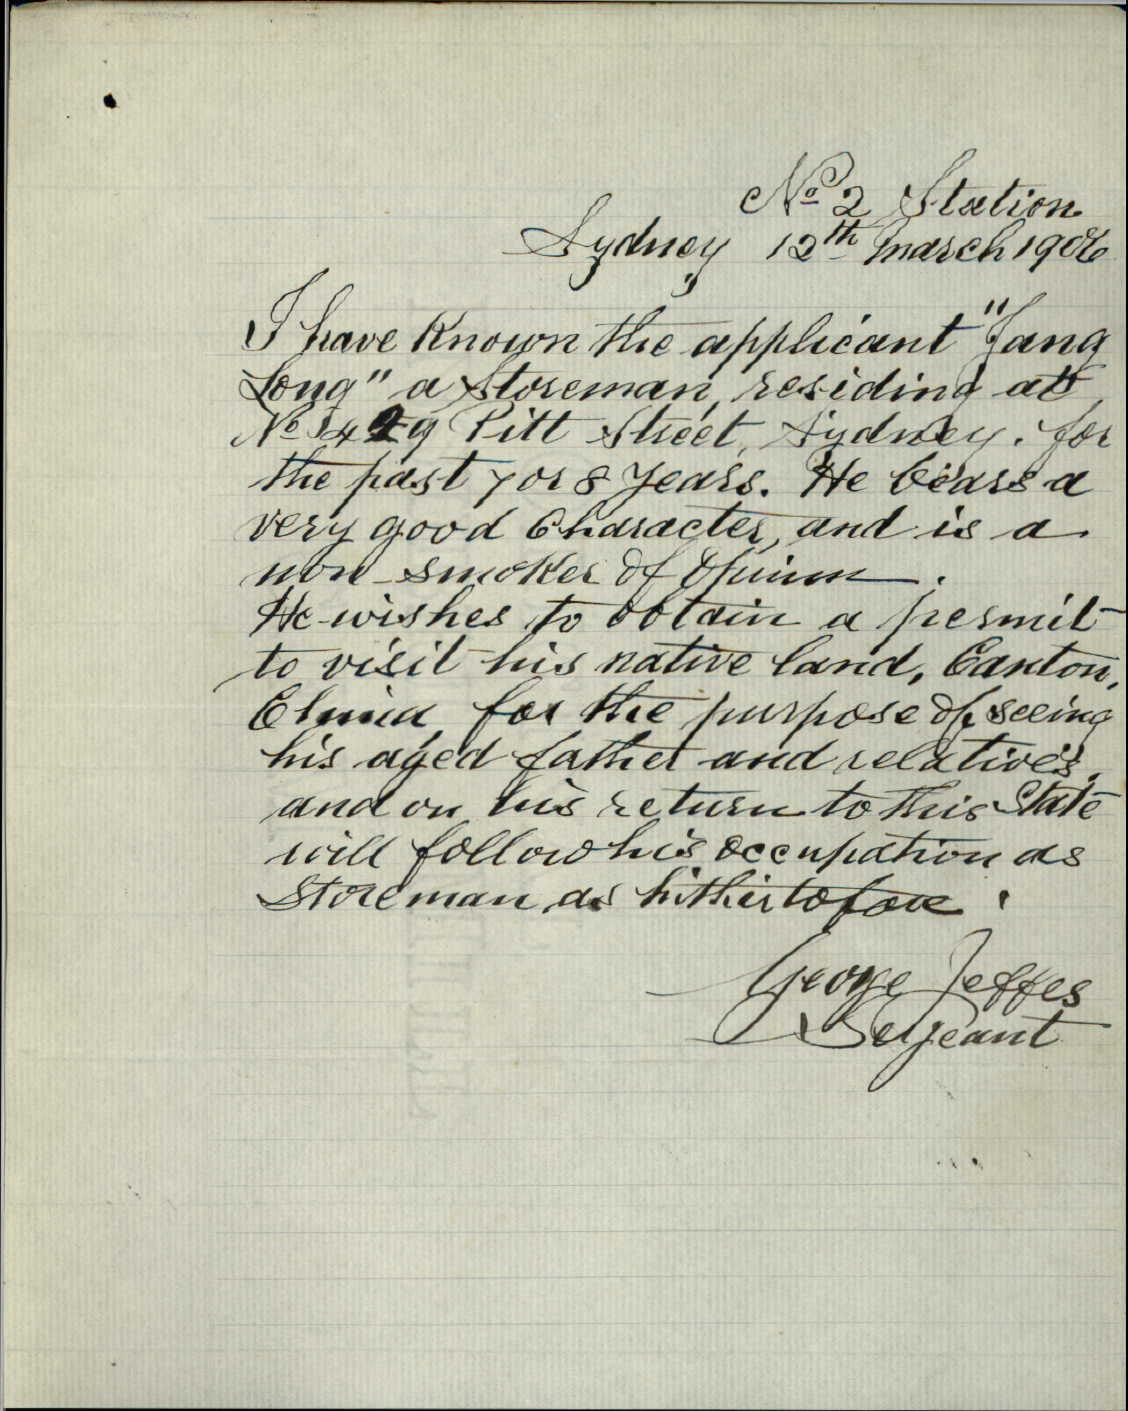 No 2 Station
Sydney 12th March 1906
I have known the applicant "Jang
Long" a Storeman, residing at
No Pitt Street, Sydney, for
the past 7 or 8 years. He bears a
very good Character, and is a
non-smoker of Opium.
He wishes to obtain a permit
to visit his native land, Canton,
China for the purpose of seeing
his aged father and relatives,
and on his return to this State
will follow his occupation as
Storeman as hithertofore.
George Jeffes
Sergeant